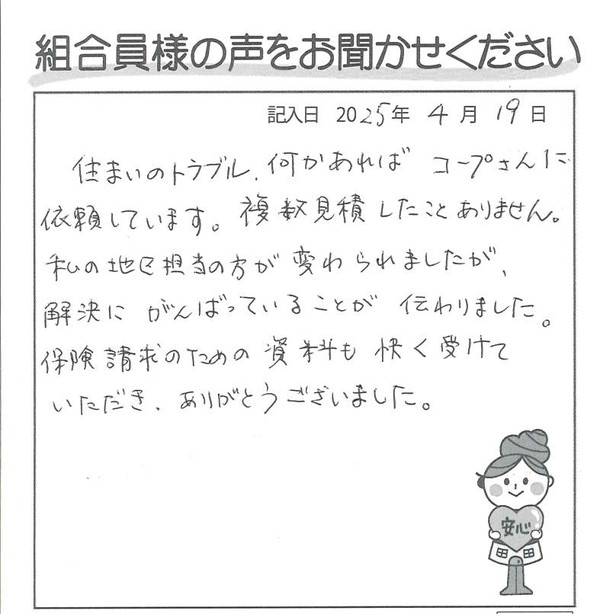 組合員様の声をお聞かせください
記入日 2025年 4月 19日
住まいのトラブル、何かあれば コープさんに
依頼しています。複数見積したことありません。
私の地区担当の方が 変わられましたが、
解決に がんばっていることが 伝わりました。
保険請求のための 資料も 快く受けて
いただき、ありがとうございました。
安心